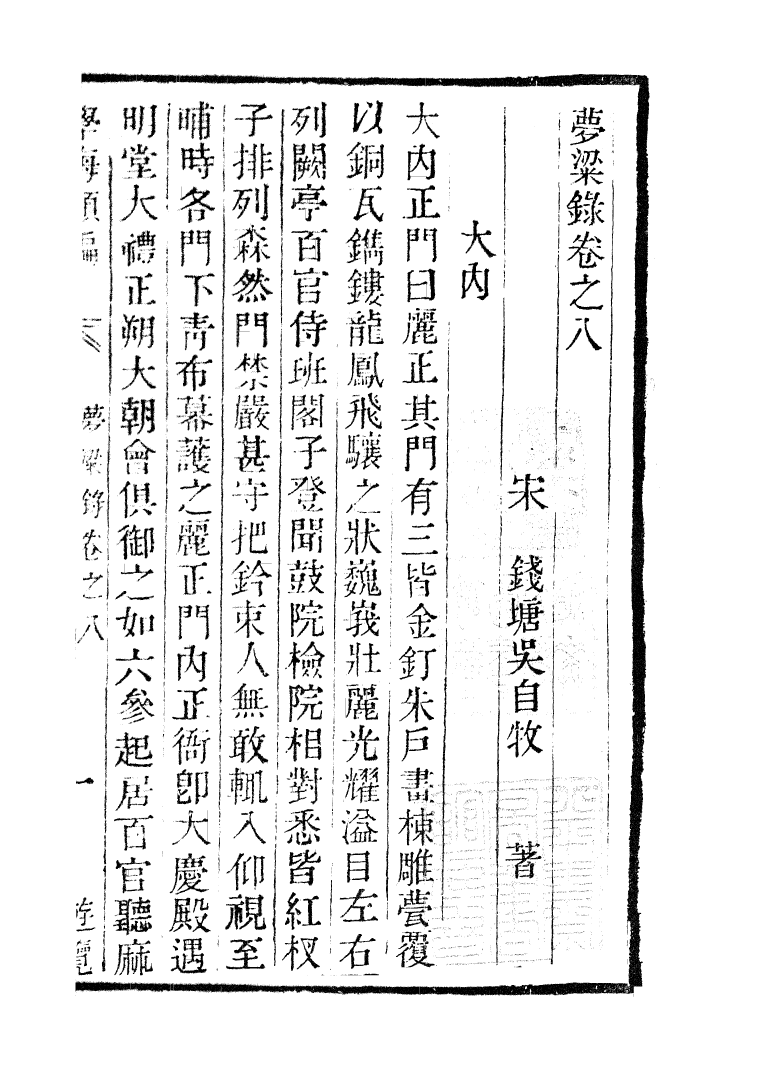 夢粱錄卷之八
宋　錢塘吳自牧　著
大內
大內正門曰麗正其門有三皆金釘朱戶畫棟雕甍覆
以銅瓦鐫鏤龍鳳飛驤之狀巍峩壯麗光耀溢目左右
列闕亭百官侍班閣子登聞鼓院檢院相對悉皆紅杈
子排列森然門禁嚴甚守把鈐束人無敢輒入仰視至
晡時各門下青布幕護之麗正門內正衙卽大慶殿遇
明堂大禮正朔大朝會俱御之如六參起居百官聽麻
學海類編　夢粱錄卷之八　一　遊覽